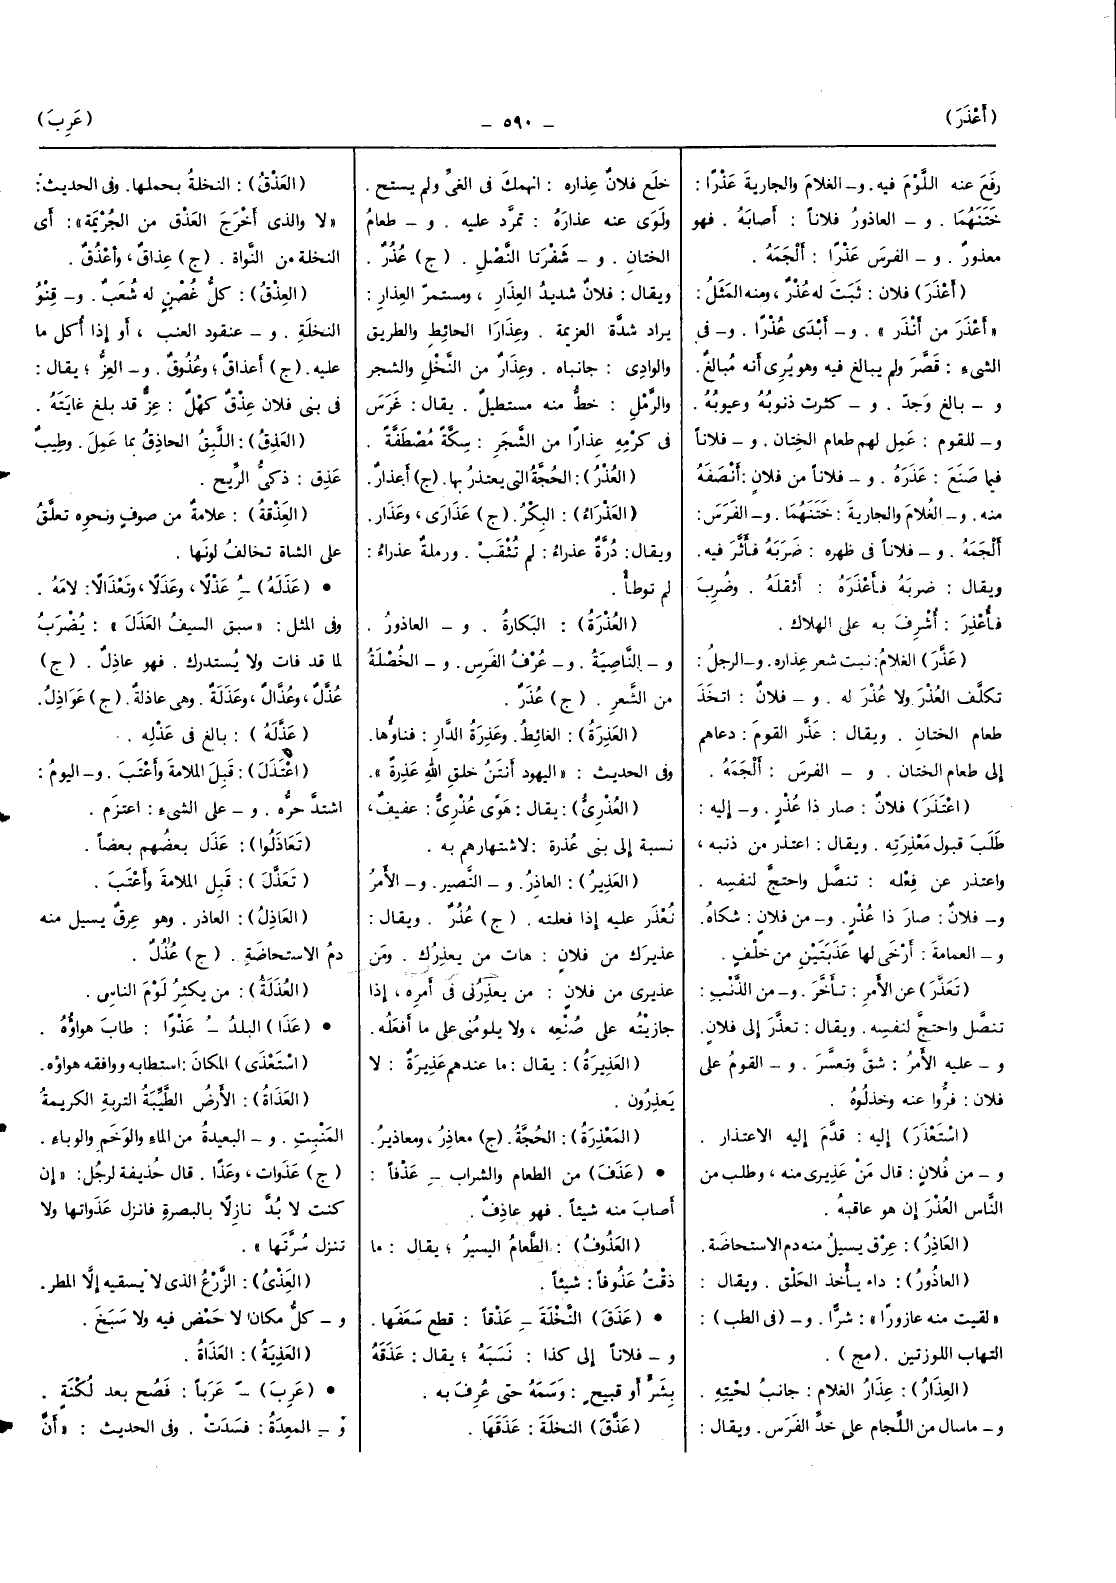 (أَعْذَرَ)
ـ ٥٩٠ ـ
(عَرِبَ)
رفَعَ عنه اللَّوْمَ فيه. و ـ الغلامَ والجاريةَ عَذْرًا :
خَتَنَهُمَا . و ـ العاذورُ فلاناً : أصابَهُ . فهو
معذورٌ . و ـ الفرسَ عَذْرًا : أَلْجَمَهُ .
(أَعْذَرَ) فلان : ثَبَتَ له عُذْرٌ ، ومنه المَثَلُ :
« أعْذَرَ من أنْذَر » . و ـ أبْدَى عُذْرًا . و ـ فى
الشىءِ : قَصَّرَ ولم يبالغ فيه وهو يُرِى أنه مُبالغٌ.
و ـ بالغ وَجَدّ . و ـ كثرت ذنوبُهُ وعيوبُهُ .
و ـ للقوم : عَمِل لهم طعام الخِتان . و ـ فلاناً
فيما صَنَعَ : عَذَرَهُ . و ـ فلاناً من فلان : أنْصَفَهُ
منه. و ـ الغُلامَ والجاريةَ : خَتَنَهُمَا . و ـ الفرَسَ :
أَلْجَمَهُ . و ـ فلاناً فى ظهره : ضَرَبَهُ فأَثَّرَ فيه.
ويقال : ضربَهُ فأعْذَرَهُ : أثقلَهُ . وضُرِبَ
فأُعْذِرَ : أُشْرِفَ به على الهلاك .
(عَذَّرَ) الغلامُ: نبت شعر عِذاره. و ـ الرجلُ :
تكلَّف العُذْرَ ولا عُذْرَ له . و ـ فلانٌ : اتخَذَ
طعام الختان . ويقال : عَذَّر القومَ : دعاهم
إلى طعام الختان . و ـ الفرسَ : أَلْجَمَهُ .
(اعْتَذَرَ) فلانٌ : صار ذا عُذْرٍ . و ـ إليه :
طَلَبَ قبول مَعْذِرَتِه . ويقال : اعتذر من ذنبه ،
واعتذر عن فِعْله : تنصَّل واحتجَّ لنفسِه .
و ـ فلانٌ : صارَ ذا عُذْرٍ. و ـ من فلان : شكاهُ.
و ـ العمامةَ : أرْخَى لها عَذَبَتَيْنِ من خلْفٍ .
(تَعَذَّرَ) عن الأمرِ : تأخَّرَ . و ـ من الذَّنْبِ :
تنصَّل واحتجَّ لنفسِه . ويقال : تعذَّرَ إلى فلان.
و ـ عليه الأمرُ : شقَّ وتعسَّرَ . و ـ القومُ على
فلان : فرُّوا عنه وخذلُوهُ .
(اسْتَعْذَرَ) إليه : قدَّمَ إليه الاعتذار .
و ـ من فُلانٍ : قال مَنْ عَذِيرى منه ، وطلب من
النَّاس العُذْرَ إن هو عاقبهُ .
(العَاذِرُ) : عِرْق يسيلُ منه دم الاستحاضة .
(العاذُورُ) : داء يأخذ الحَلْق . ويقال :
« لقيت منه عازورًا » : شرًّا . و ـ (فى الطب) :
التهاب اللوزتين . (مج) .
(العِذَارُ) : عِذَارُ الغلام : جانبُ لحْيَتِهِ .
و ـ ماسال من اللِّجام على خدِّ الفَرَسِ . ويقال :
خلَع فلانٌ عِذاره : انهمكَ فى الغىِّ ولم يستح .
ولَوَى عنه عذارَهُ : تمرَّد عليه . و ـ طعامُ
الختان . و ـ شَفْرَتا النَّصْلِ . (ج) عُذُرٌ .
ويقال : فلانٌ شديدُ العِذَارِ ، ومستمرُّ العِذارِ :
يراد شدَّة العزيمة . وعِذَارَا الحائِطِ والطريق
والوادِى : جانباه . وعِذَارٌ من النَّخْلِ والشجر
والرَّمْلِ : خطٌّ منه مستطيلٌ . يقال : غَرَسَ
فى كرْمِهِ عِذارًا من الشَّجَرِ : سِكَّةً مُصْطَفَّةً .
(العُذْرُ) : الحُجَّةُ التى يعتذرُ بها. (ج) أعذارٌ.
(العَذْرَاءُ) : البِكْرُ. (ج) عَذَارَى ، وعَذَارٍ.
ويقال: دُرَّةٌ عذراءُ : لم تُثْقَبْ . ورملةٌ عذراءُ :
لم توطأْ .
(العُذْرَةُ) : البَكارةُ . و ـ العاذورُ .
و ـ النَّاصِيَةُ . و ـ عُرْفُ الفَرَسِ . و ـ الخُصْلَةُ
من الشَّعر . (ج) عُذَرٌ .
(العَذِرَةُ) : الغائِطُ. وعَذِرَةُ الدَّار : فناوُها.
وفى الحديث : « اليهود أنتَنُ خلقِ اللهِ عَذِرةً ».
(العُذْرِىُّ) : يقال : هَوًى عُذْرِىٌّ : عفيفٌ ،
نسبة إلى بنى عُذرة : لاشتهارهم به .
(العَذِيرُ) : العاذِرُ. و ـ النَّصير. و ـ الأمرُ
تُعْذَر عليه إذا فعلته . (ج) عُذُرٌ . ويقال :
عذيرَك من فلانٍ : هات من يعذِرُك . ومَن
عذيرى من فلان : من يعذِرُنى فى أمره ، إذا
جازيْتُه على صُنْعِه ، ولا يلومُنى على ما أفعَلُه.
(العَذِيرَةُ) : يقال : ما عندهم عَذِيرَةٌ : لا
يَعذِرُون .
(المَعْذِرَةُ) : الحُجَّةُ. (ج) معاذِرُ، ومعاذيرُ.
● (عَذَفَ) من الطعام والشراب ـِ عَذْفاً :
أصابَ منه شيئاً . فهو عاذِفٌ .
(العَذُوفُ) : الطَّعامُ اليسيرُ ؛ يقال : ما
ذقْتُ عَذُوفاً : شيئاً .
● (عَذَقَ) النَّخْلَةَ ـِ عَذْقاً : قطع سَعَفَها.
و ـ فلاناً إلى كذا : نَسَبَهُ ؛ يقال : عَذَقَهُ
بِشَرٍّ أو قبيحٍ : وَسَمَهُ حتى عُرِفَ به .
(عَذَّقَ) النخلةَ : عَذَقَهَا .
(العَذْقُ) : النخلةُ بحملها. وفى الحديث :
«لا والذى أخْرَجَ العَذْق من الجُرْيْمَة» : أى
النخلة من النَّواة . (ج) عِذاقٌ، وأعْذُقٌ .
(العِذْقُ) : كلُّ غُصْنٍ له شُعَبٌ . و ـ قِنْوُ
النخلَةِ . و ـ عنقود العنب ، أو إذا أُكل ما
عليه. (ج) أعذاقٌ؛ وعُذُوقٌ . و ـ العِزُّ ؛ يقال :
فى بنى فلان عِذْقٌ كهْلٌ : عِزٌّ قد بلغ غايَتَهُ .
(العَذِقُ) : اللَّبِقُ الحاذِقُ بما عَمِلَ . وطِيبٌ
عَذِق : ذكىُّ الرِّيح .
(العِذْقَةُ) : علامةٌ من صوفٍ ونحوِه تعلَّقُ
على الشاة تخالفُ لونَها .
● (عَذَلَهُ) ـُِ عَذْلًا ، وعَذَلًا ، وتَعْذَالًا : لامَهُ .
وفى المثل : « سبق السيفُ العَذَلَ » : يُضْرَبُ
لما قد فات ولا يُستدرك . فهو عاذِلٌ . (ج)
عُذَّلٌ، وعُذَّالٌ ، وعَذَلَةٌ . وهى عاذلةٌ. (ج) عَوَاذِلُ.
(عَذَّلَهُ) : بالغ فى عَذْلِه .
(اعْتَذَلَ) : قَبِلَ الملامةَ وأعْتَبَ . و ـ اليومُ :
اشتدَّ حرُّه . و ـ على الشىءِ : اعتزم .
(تَعَاذَلُوا) : عَذَل بعضُهم بعضاً .
(تَعَذَّلَ) : قَبِل الملامةَ وأعْتَبَ .
(العَاذِلُ) : العاذر . وهو عِرقٌ يسيل منه
دمُ الاستحاضَةِ . (ج) عُذُلٌ .
(العُذَلَةُ) : من يكثِرُ لَوْمَ الناس .
● (عَذَا) البلدُ ـُ عَذْوًا : طابَ هواؤُهُ .
(اسْتَعْذَى) المكانَ : استطابه ووافقه هواؤه.
(العَذَاةُ) : الأرضُ الطَّيِّبَةُ التربةِ الكريمةُ
المَنْبِتِ . و ـ البعيدةُ من الماءِ والوَخَمِ والوباءِ .
(ج) عَذَوات، وعَذًا . قال حُذيفة لرجُل: « إن
كنت لا بُدَّ نازِلًا بالبصرةِ فانزل عَذَواتها ولا
تنزل سُرَّتَها » .
(العِذْىُ) : الزَّرْعُ الذى لا يسقيه إلَّا المطر.
و ـ كلُّ مكان لا حَمْض فيه ولا سَبَخَ .
(العَذِيَةُ) : العَذَاةُ .
● (عَرِبَ) ـَ عَرَباً : فَصُح بعد لُكْنَةٍ .
و ـ المعِدَةُ : فسَدَتْ . وفى الحديث : « أنَّ